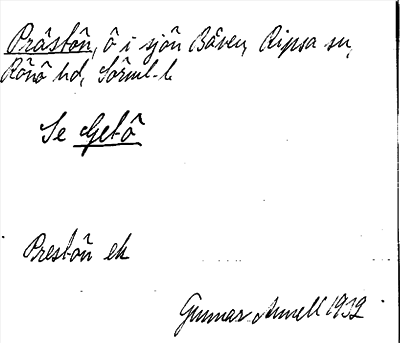 Prästön, ö i sjön Båven, Ripsa sn,
Rönö hd, Sörml. l.
Se Getö
Prestön ek
Gunnar Amell 1932